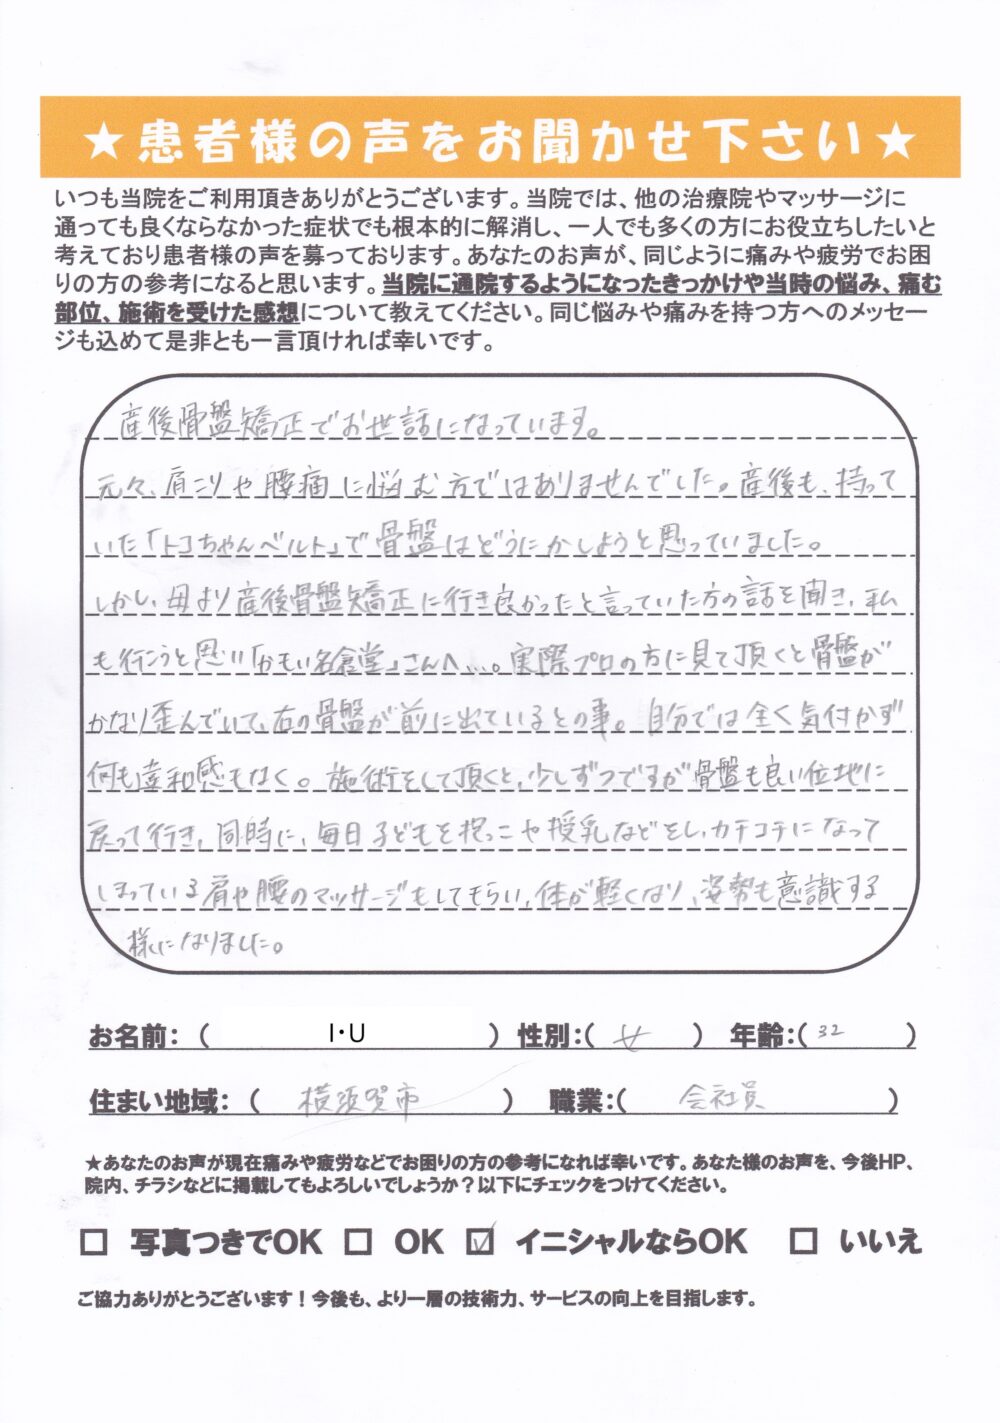 ★患者様の声をお聞かせ下さい★
いつも当院をご利用頂きありがとうございます。当院では、他の治療院やマッサージに
通っても良くならなかった症状でも根本的に解消し、一人でも多くの方にお役立ちしたいと
考えており患者様の声を募っております。あなたのお声が、同じように痛みや疲労でお困
りの方の参考になると思います。当院に通院するようになったきっかけや当時の悩み、痛む
部位、施術を受けた感想について教えてください。同じ悩みや痛みを持つ方へのメッセー
ジも込めて是非とも一言頂ければ幸いです。
産後骨盤矯正でお世話になっています。
元々、肩こりや腰痛に悩む方ではありませんでした。産後も、持って
いた「トコちゃんベルト」で骨盤はどうにかしようと思っていました。
しかし、母より産後骨盤矯正に行き良かったと言っていた方の話を聞き、私
も行こうと思い「かもい名倉堂」さんへ...。実際プロの方に見て頂くと骨盤が
かなり歪んでいて、右の骨盤が前に出ているとの事。自分では全く気付かず
何も違和感もなく。施術をして頂くと、少しずつですが骨盤も良い位地に
戻って行き、同時に、毎日子どもを抱っこや授乳などをし、カチコチになって
しまっている肩や腰のマッサージもしてもらい、体が軽くなり、姿勢も意識する
様になりました。
お名前：（ I・U ） 性別：（ 女 ） 年齢：（ 32 ）
住まい地域：（ 横須賀市 ） 職業：（ 会社員 ）
★あなたのお声が現在痛みや疲労などでお困りの方の参考になれば幸いです。あなた様のお声を、今後HP、
院内、チラシなどに掲載してもよろしいでしょうか？以下にチェックをつけてください。
□ 写真つきでOK □ OK ☑ イニシャルならOK □ いいえ
ご協力ありがとうございます！今後も、より一層の技術力、サービスの向上を目指します。